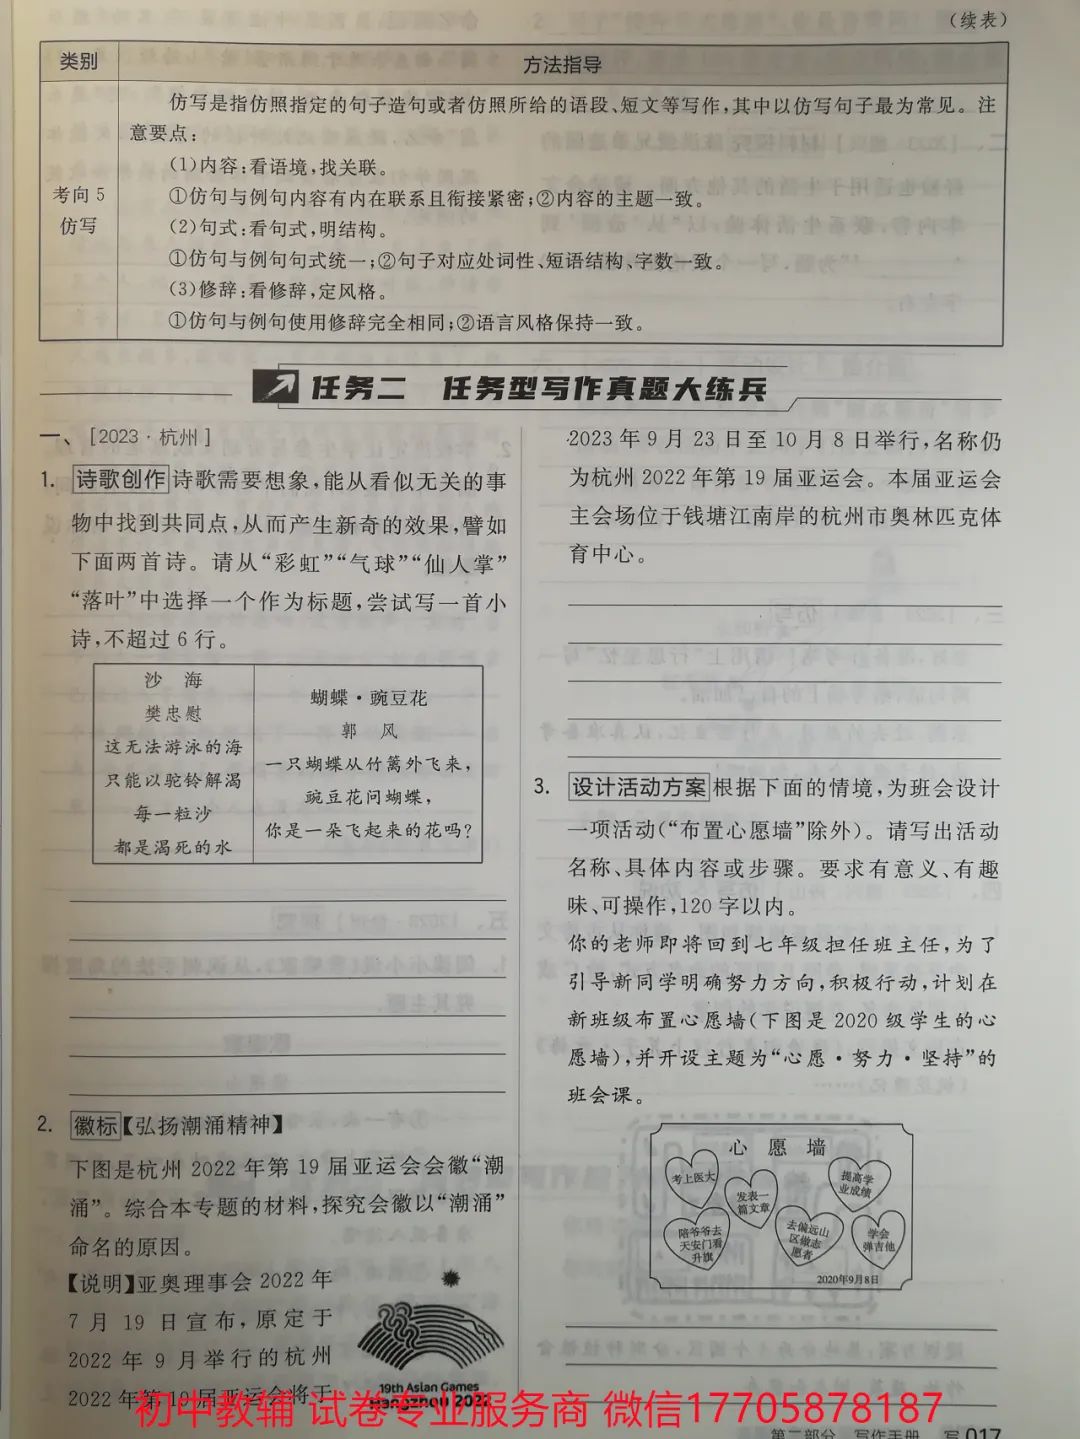 （续表）
类别
方法指导
考向 5
仿写
仿写是指仿照指定的句子造句或者仿照所给的语段、短文等写作，其中以仿写句子最为常见。注
意要点：
（1）内容：看语境，找关联。
①仿句与例句内容有内在联系且衔接紧密；②内容的主题一致。
（2）句式：看句式，明结构。
①仿句与例句句式统一；②句子对应处词性、短语结构、字数一致。
（3）修辞：看修辞，定风格。
①仿句与例句使用修辞完全相同；②语言风格保持一致。
任务二 任务型写作真题大练兵
一、［2023·杭州］
1. 诗歌创作 诗歌需要想象，能从看似无关的事
物中找到共同点，从而产生新奇的效果，譬如
下面两首诗。请从“彩虹”“气球”“仙人掌”
“落叶”中选择一个作为标题，尝试写一首小
诗，不超过 6 行。
沙 海
樊忠慰
这无法游泳的海
只能以驼铃解渴
每一粒沙
都是渴死的水
蝴蝶·豌豆花
郭 风
一只蝴蝶从竹篱外飞来，
豌豆花问蝴蝶，
你是一朵飞起来的花吗？
2. 徽标【弘扬潮涌精神】
下图是杭州 2022 年第 19 届亚运会会徽“潮
涌”。综合本专题的材料，探究会徽以“潮涌”
命名的原因。
【说明】亚奥理事会 2022 年
7 月 19 日宣布，原定于
2022 年 9 月举行的杭州
2022 年第 19 届亚运会将于
19th Asian Games
Hangzhou 2022
2023 年 9 月 23 日至 10 月 8 日举行，名称仍
为杭州 2022 年第 19 届亚运会。本届亚运会
主会场位于钱塘江南岸的杭州市奥林匹克体
育中心。
3. 设计活动方案 根据下面的情境，为班会设计
一项活动（“布置心愿墙”除外）。请写出活动
名称、具体内容或步骤。要求有意义、有趣
味、可操作，120 字以内。
你的老师即将回到七年级担任班主任，为了
引导新同学明确努力方向，积极行动，计划在
新班级布置心愿墙（下图是 2020 级学生的心
愿墙），并开设主题为“心愿·努力·坚持”的
班会课。
心 愿 墙
考上医大
发表一
篇文章
提高学
业成绩
陪爷爷去
天安门看
升旗
去偏远山
区做志
愿者
学会
弹吉他
2020年9月8日
初中教辅 试卷专业服务商 微信17705878187
第二部分 写作手册 写 017